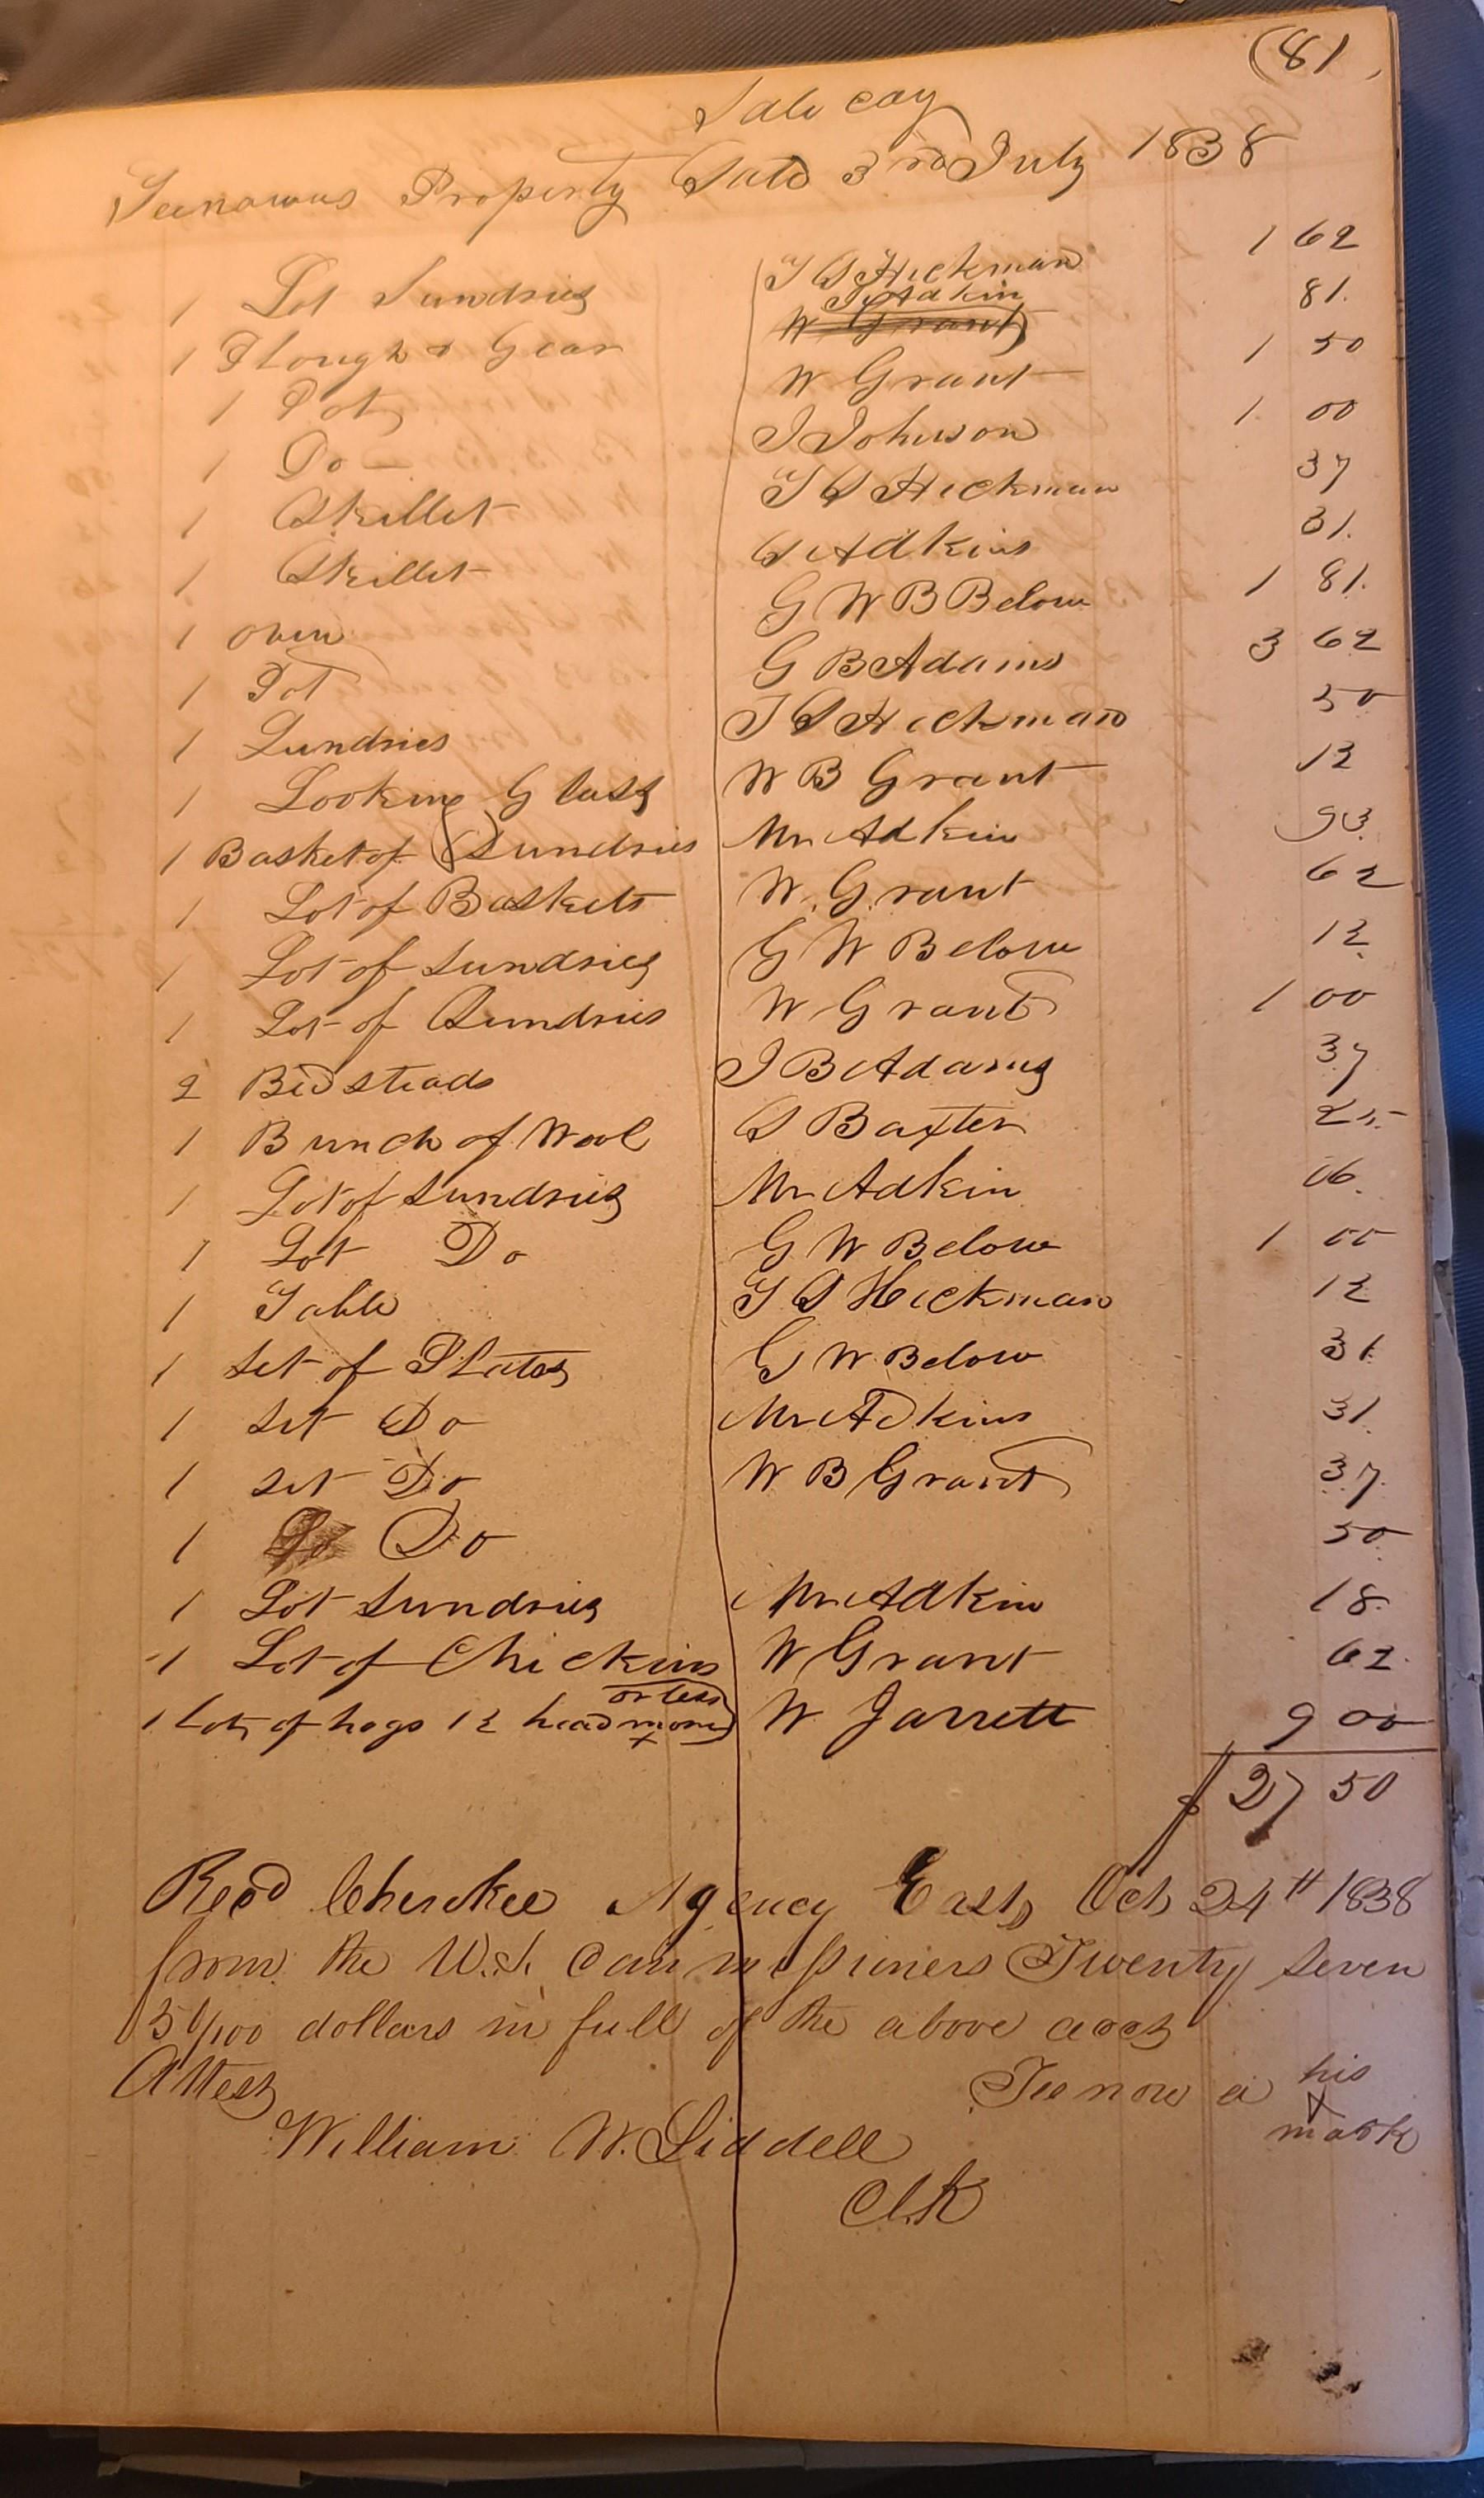 (81
Sale cay
Teenowas Property Sold 3rd July 1838
1 Lot Sundries T S Hickman 1 62
1 Plough & Gear J Adkin W Grant 81.
1 Pot W Grant 1 50
1 Do J Johnson 1. 00
1 Skillet T S Hickman 37
1 Skillet S Adkins 31.
1 oven G W B Below 1 81.
1 Pot G B Adams 3 62
1 Sundries T S Hickman 50
1 Looking Glass W B Grant 12
1 Basket of Sundries Mr Adkin 93.
1 Lot of Baskets W. Grant 62
1 Lot of Sundries G W Below 12
1 Lot of Sundries W Grant 1 00
2 Bedsteads J B Adams 37
1 Bunch of Wool S Baxter 25.
1 Lot of Sundries Mr Adkin 06.
1 Lot Do G W Below 1 00
1 Table T S Hickman 12
1 Set of Plates G W Below 31
1 Set Do Mr Adkins 31.
1 Set Do W B Grant 37.
1 Do 50
1 Lot Sundries Mr Adkin 18.
1 Lot of Chickins W Grant 62.
or less
1 Lot of hogs 12 head more W Jarrett 9 00
$ 27 50
Recd Cherokee Agency East, Oct 24th 1838
from the U.S. Commissioners Twenty Seven
50/100 dollars in full of the above acct
Attest Teenow a his
x
mark
William W. Liddell
Clk